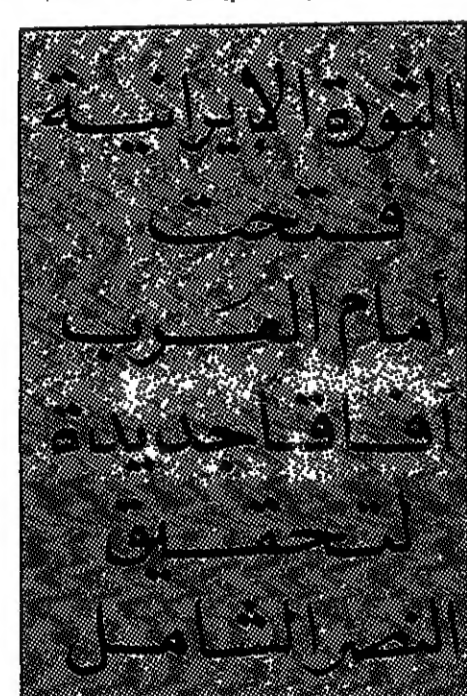 الثورة الايرانية
فتحت
أمام العرب
آفاقا جديدة
لتحقيق
النصر الشامل